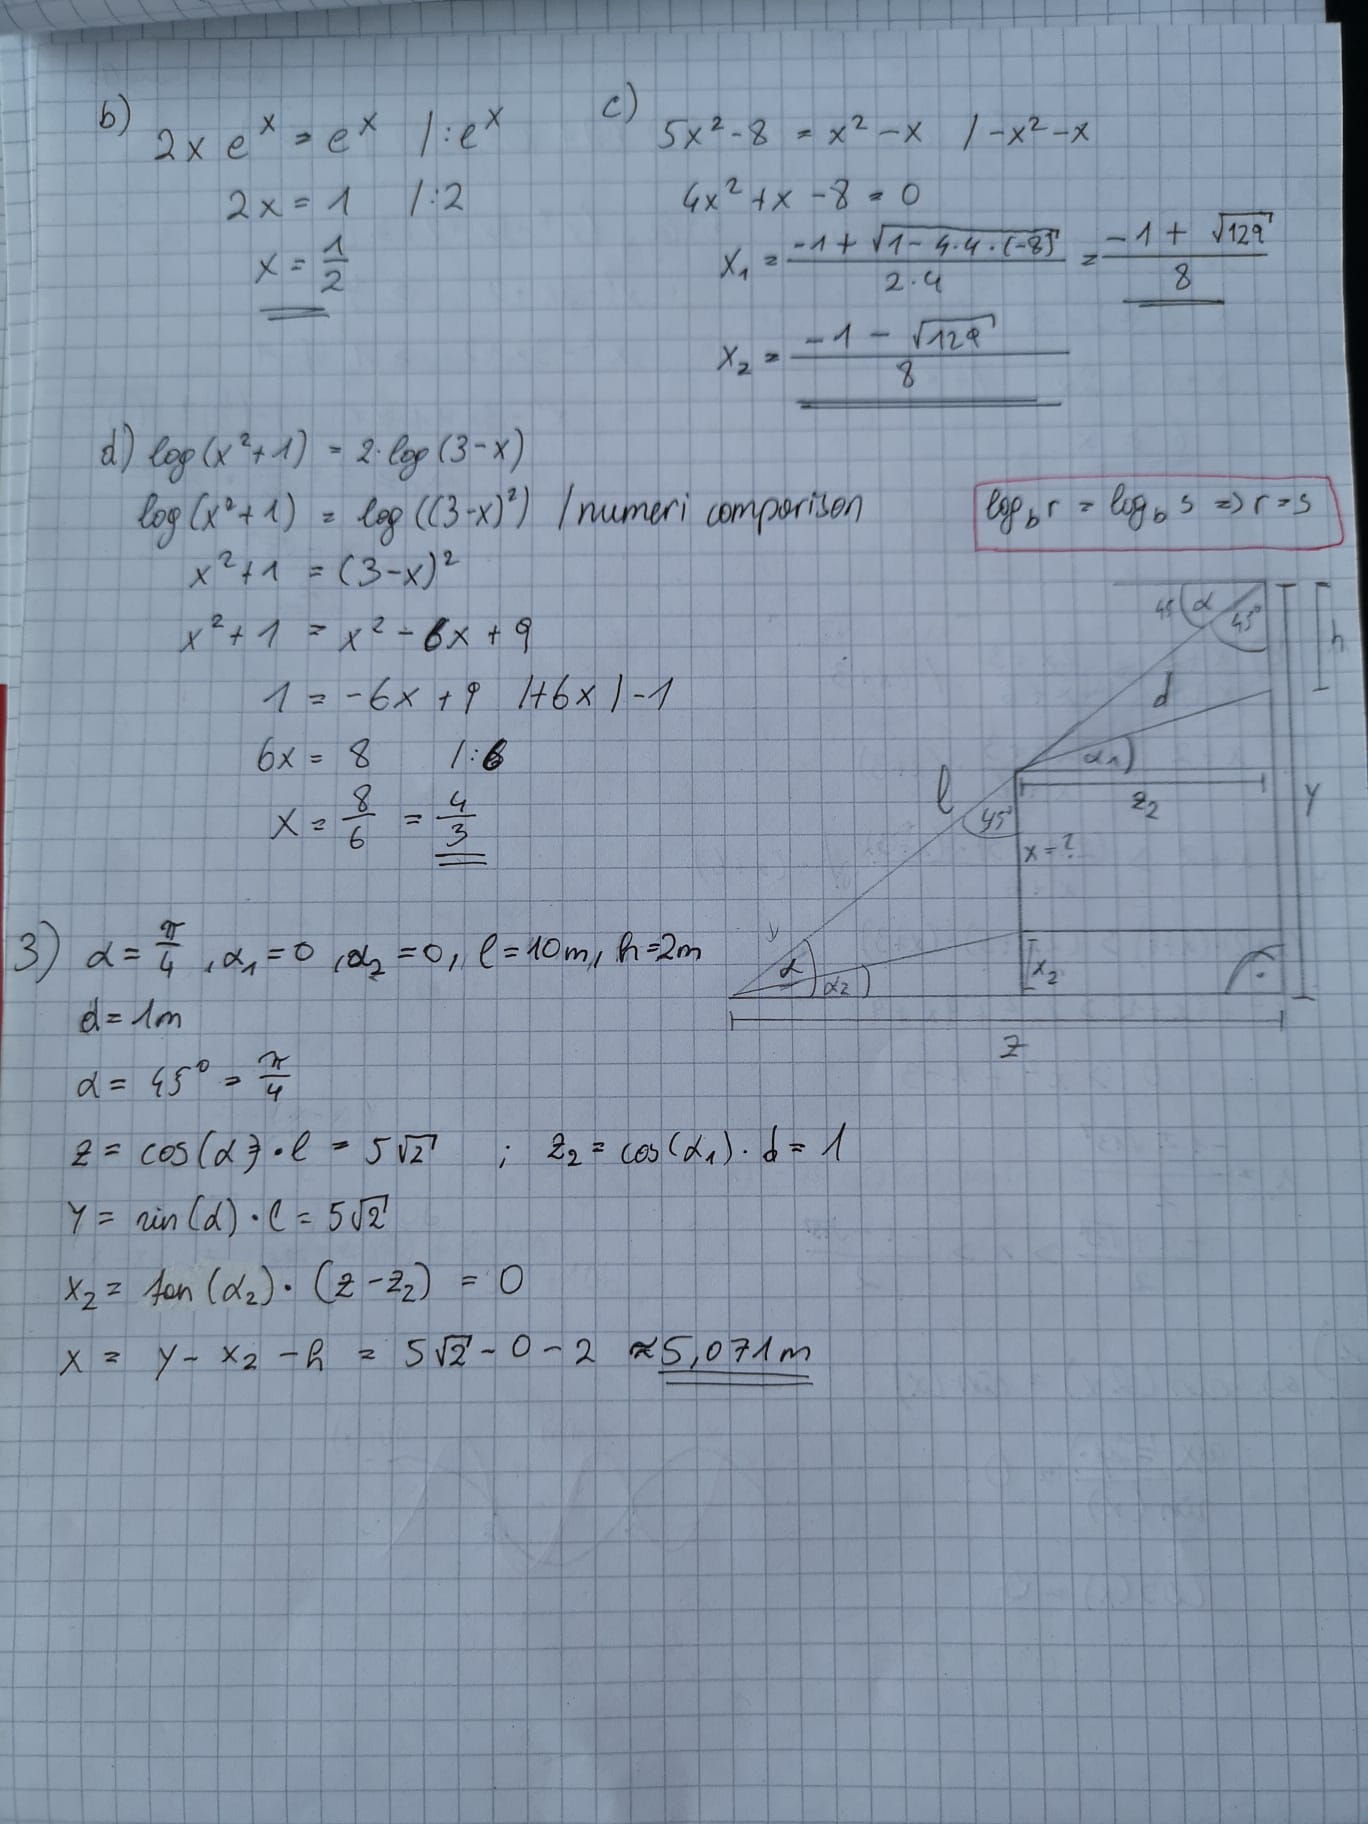 b)
2x eˣ = eˣ /:eˣ
2x = 1 /:2
x = 1/2
c)
5x² - 8 = x² - x / -x² - x
4x² + x - 8 = 0
x₁ = (-1 + √(1 - 4·4·(-8)))/(2·4) = (-1 + √129)/8
x₂ = (-1 - √129)/8
d) log(x²+1) = 2·log(3-x)
log(x²+1) = log((3-x)²) /numeri comparison
log_b r = log_b s => r = s
x²+1 = (3-x)²
x²+1 = x² - 6x + 9
1 = -6x + 9 /+6x /-1
6x = 8 /:6
x = 8/6 = 4/3
45 α 45°
h
d
α₁
z₂
l
45°
x = ?
y
α
α₂
x₂
z
3) α = π/4, α₁ = 0, α₂ = 0, l = 10m, h = 2m
d = 1m
α = 45° = π/4
z = cos(α)·l = 5√2 ; z₂ = cos(α₁)·d = 1
y = sin(α)·l = 5√2
x₂ = tan(α₂)·(z - z₂) = 0
x = y - x₂ - h = 5√2 - 0 - 2 ≈ 5,071m